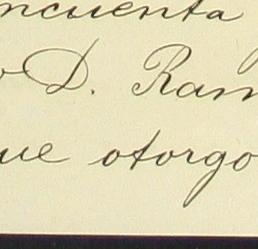 ncuenta
D. Ram
ue otorgo